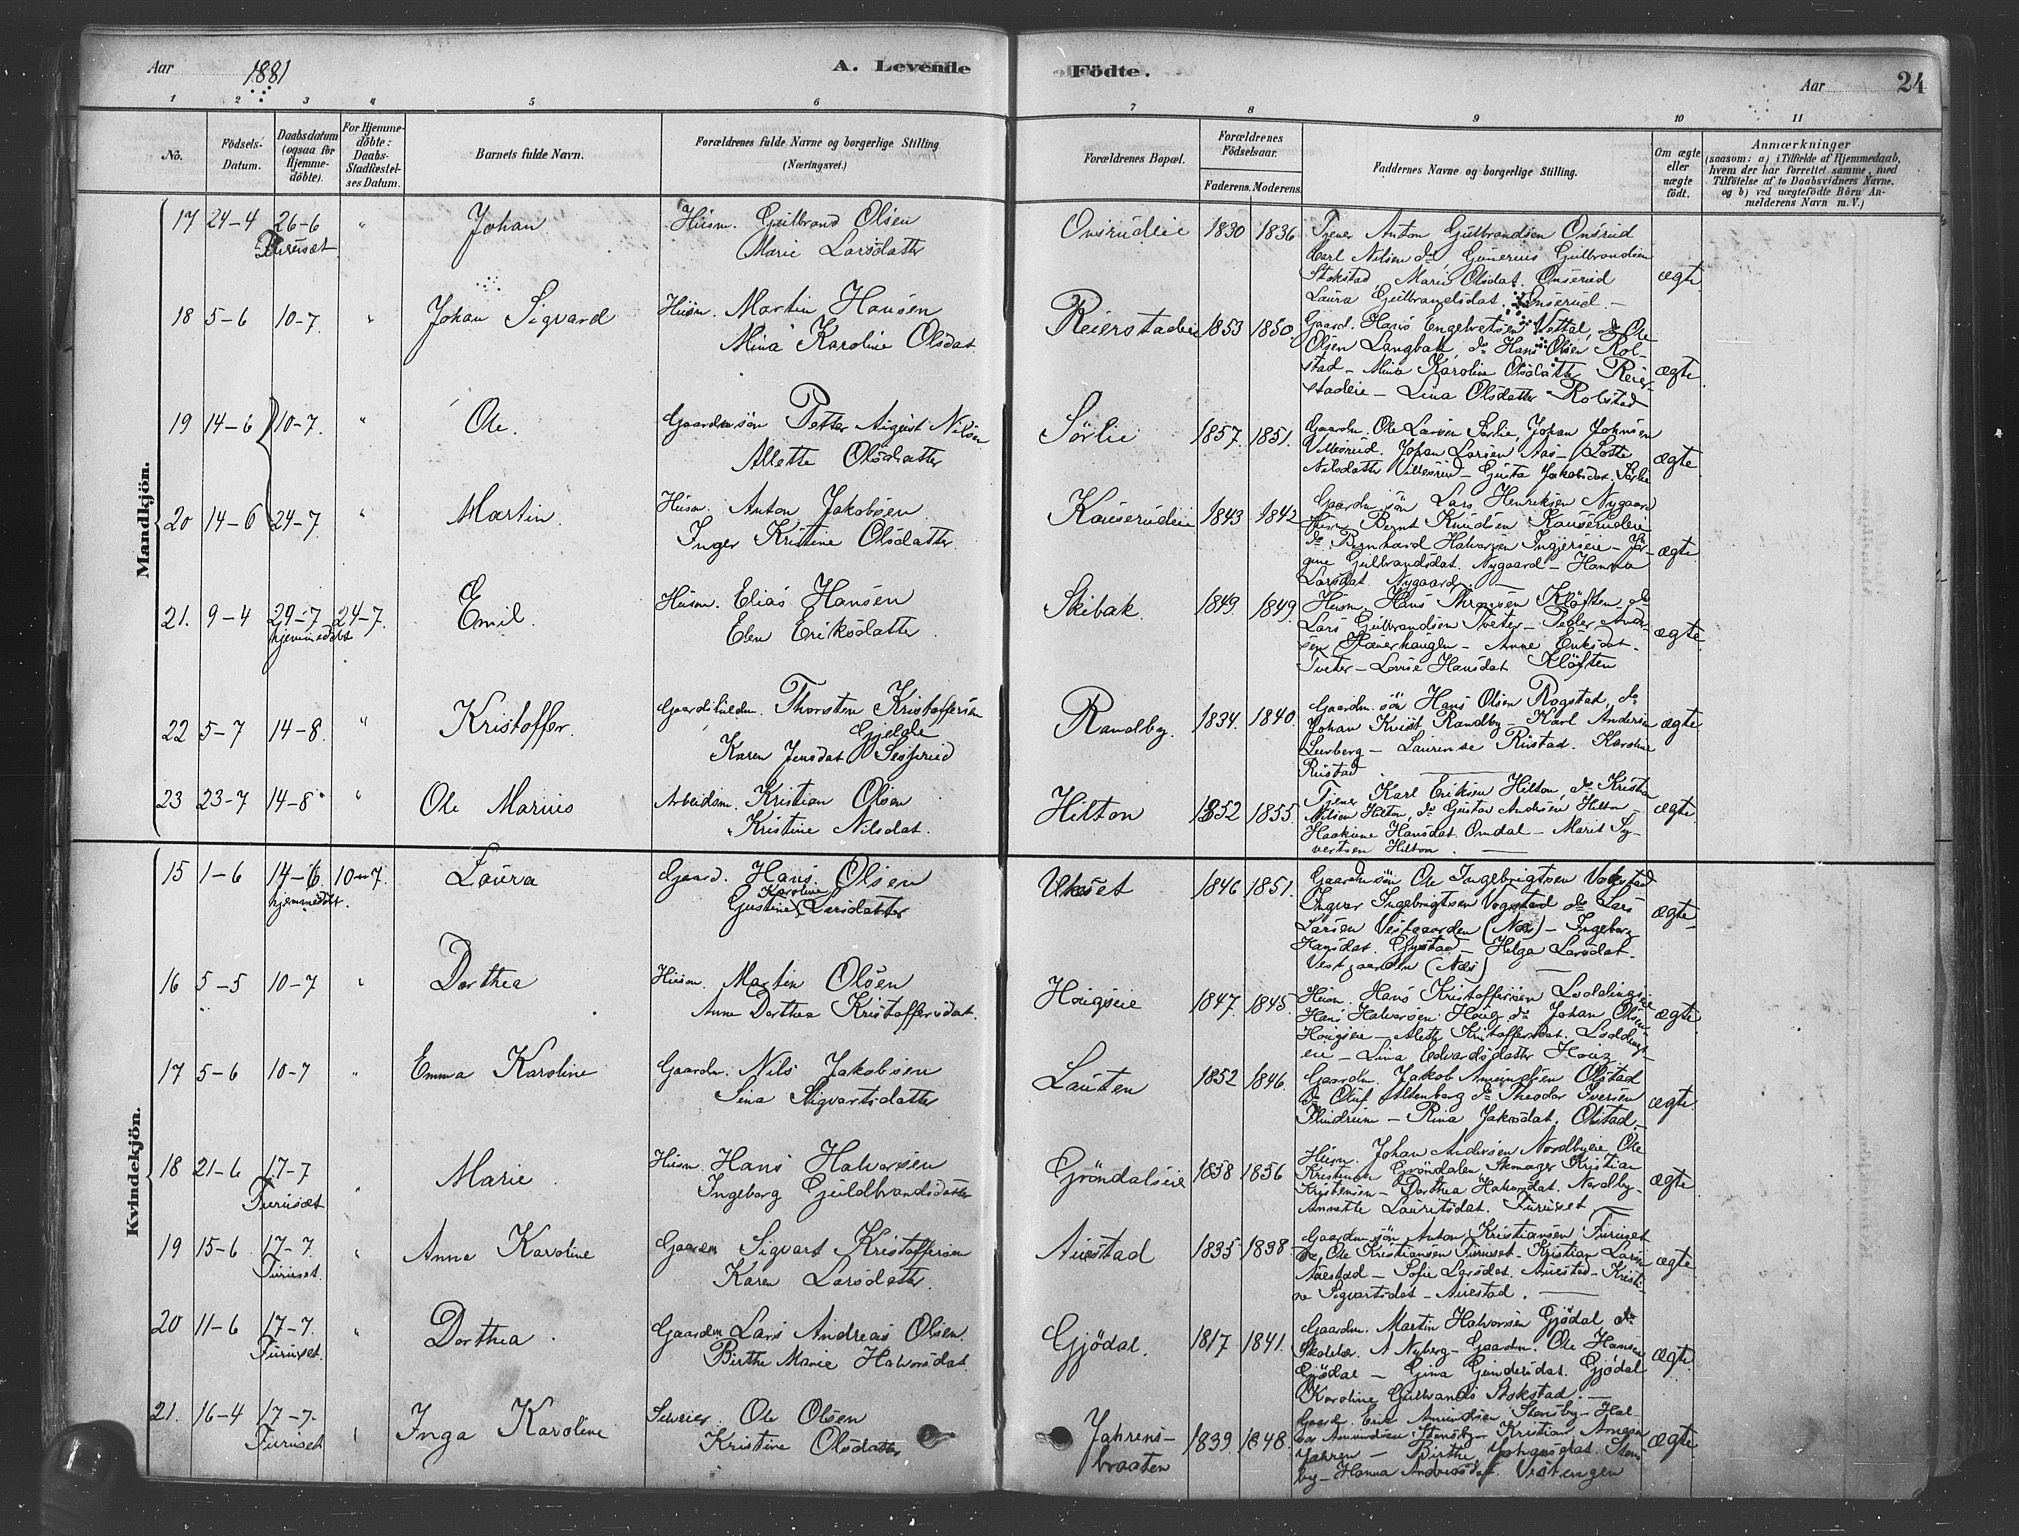 Aar 1881 A. Levende Födte. Aar 24
1 2 3 4 5 6 7 8 9 10 11
No. Födsels-Datum. Daabsdatum (ogsaa for Hjemmedöbte). For Hjemmedöbte: Daabs-Stadfæstelses Datum. Barnets fulde Navn. Forældrenes fulde Navne og borgerlige Stilling (Næringsvei.) Forældrenes Bopæl. Forældrenes Födselsaar. Faderens. Moderens. Faddernes Navne og borgerlige Stilling. Om ægte eller uægte födt. Anmærkninger (saasom: a) i Tilfælde af Hjemmedaab, hvem der har forrettet samme, med Tilföielse af to Daabsvidners Navne. og b) ved uægtefödte Börn Anmelderens Navn m. V.)
Mandkjön.
17 24-4 26-6 Furuset " Johan Husm. Gulbrand Olsen
Marie Larsdatter Onsrudeie 1830 1836 Tjener Anton Gulbrandsen Onsrud
Karl Nilsen do, Gunerius Gulbrandsen
Stokstad Marie Olsdat. Onserud
Laura Gulbrandsdat. Onserud - ægte
18 5-6 10-7. " Johan Sigvard Husm. Martin Hansen
Mina Karoline Olsdat. Reierstadeie 1853 1850 Gaard. Hans Engebretsen Vettal, do Ole
Olsen Langbak, do Hans Olsen Rol-
stad - Mina Karoline Olsdatter Reier-
stadeie - Lina Olsdatter Rolstad ægte
19 14-6 10-7. " Ole. Gaardmsøn Petter August Nilsen
Allette Olsdatter Sørlie 1857. 1851. Gaardm. Ole Larsen Sørlie, Johan Johnsen
Villesrud. Johan Larsen Aas - Lotte
Nilsdatter Villesrud - Gusta Jakobsdat. Sørlie ægte
20 14-6 24-7. " Martin. Husm. Anton Jakobsen
Inger Kristine Olsdatter. Kauserudeie 1843 1842 Gaardm. søn Lars Henriksen Nygaard
Husm Bernt Knudsen Kauserudeie
do Bernhard Halvorsen Ingjerseie - Jør-
gine Gulbrandsdat. Nygaard - Hanna
Larsdat. Nygaard. - ægte
21. 9-4 29-7 hjemmedøbt 24-7. Emil. Husm. Elias Hansen
Elen Eriksdatter. Skibak. 1849. 1849. Husm. Hans Kløften do
Lars Gulbrandsen Tveter - Peder Ander-
sen - Anne Eriksdat.
Tveter - Lovise Hansdat Kløften ægte.
22 5-7 14-8. " Kristoffer. Thorsten Kristoffersen
Gjelde
Karen Jensdat Randby. 1834. 1840. Gaardm. søn Hans Olsen Rogstad, do
Johan Randby - Karl Andersen
- Laurense Rustad. Karoline
Rustad ægte
23 23-7 14-8. " Ole Marius Arbeidsm. Kristian Olsen
Kristine Nilsdat. Hilton 1852 1855. Tjener Karl Eriksen Hilton, do Kristian
Nilsen Hilton, do Gustav Andersen Hilton
Hansdat. Omdal - Marit Sy-
vertsen Hilton. - ægte.
Kvindekjön.
15 1-6 14-6. hjemmedøbt. 10-7. Laura Gaard. Hans Olsen
Gustine Karoline Larsdatter 1846. 1851. Gaardm søn Ole Ingebrigtsen Vogstad
Ingvar Ingebrigtsen Vogstad do Lars
Larsen Vestgaarden (Næs) - Ingeborg
Hansdat. Gystad - Helga Larsdat.
Vestgaarden (Næs) - ægte
16 5-5 10-7 " Dorthea Husm. Martin Olsen
Anne Dorthea Kristoffersdat. Hougseie 1847. 1845. Husm. Hans Kristoffersen
Hans Halvorsen Houg do Johan Olsen
Hougseie - Kristoffersdat.
eie - Lina Edvardsdatter Houg ægte
17 5-6 10-7 " Emma Karoline Gaardm. Nils Jakobsen
Sina Sigvartsdatter Lauten 1852 1846. Gaardm. Jakob Amundsen Olstad
do Oluf Altenberg do Theodor Iversen
- Rina Jakobsdat. Olstad. - ægte.
18 21-6 17-7 Furuset " Marie. Husm. Hans Halvorsen
Ingeborg Guldbrandsdatter Gröndalseie 1858 1856 Husm. Johan Andersen Nordbyeie Ole
Kristensen Gröndalen, Skomager Kristian
Kristensen - Dorthea Halvorsdat. Nordby -
Annette Lauritsdat. Furuset - ægte
19 15-6 17-7. Furuset. " Anna Karoline Gaardm Sigvart Kristoffersen
Karen Larsdatter. Auestad 1835 1838 Gaardm søn Anton Kristiansen Furuset
do, Ole Kristiansen Furuset - Kristian Larsen
Auestad - Sofie Larsdat. Auestad - Kristi-
ne Sigvartsdat - Auestad. - ægte
20 11-6 17-7. Furuset. " Dorthea. Gaardm Lars Andreas Olsen.
Birthe Marie Halvorsdat. Gjödal. 1817 1841. Gaardm. Martin Halvorsen Gjödal do
Skolelær. A Nyberg - Gaardm. Ole Hansen
Gjödal - Gina Gundersdat. Gjödal
Karoline Gulbrands Stokstad. - ægte.
21. 16-4 17-7. Furuset " Inga Karoline Selveier. Ole Olsen
Kristine Olsdatter Jahrens-
braaten 1839. 1848. Gaardm. Erik Amundsen Stensby - Hal-
vor Amundsen Stensby - Kristian Arnesen
Jahren - Birthe Johansdat. Stens-
by - Hanna Andreasdat. Vestengen ægte